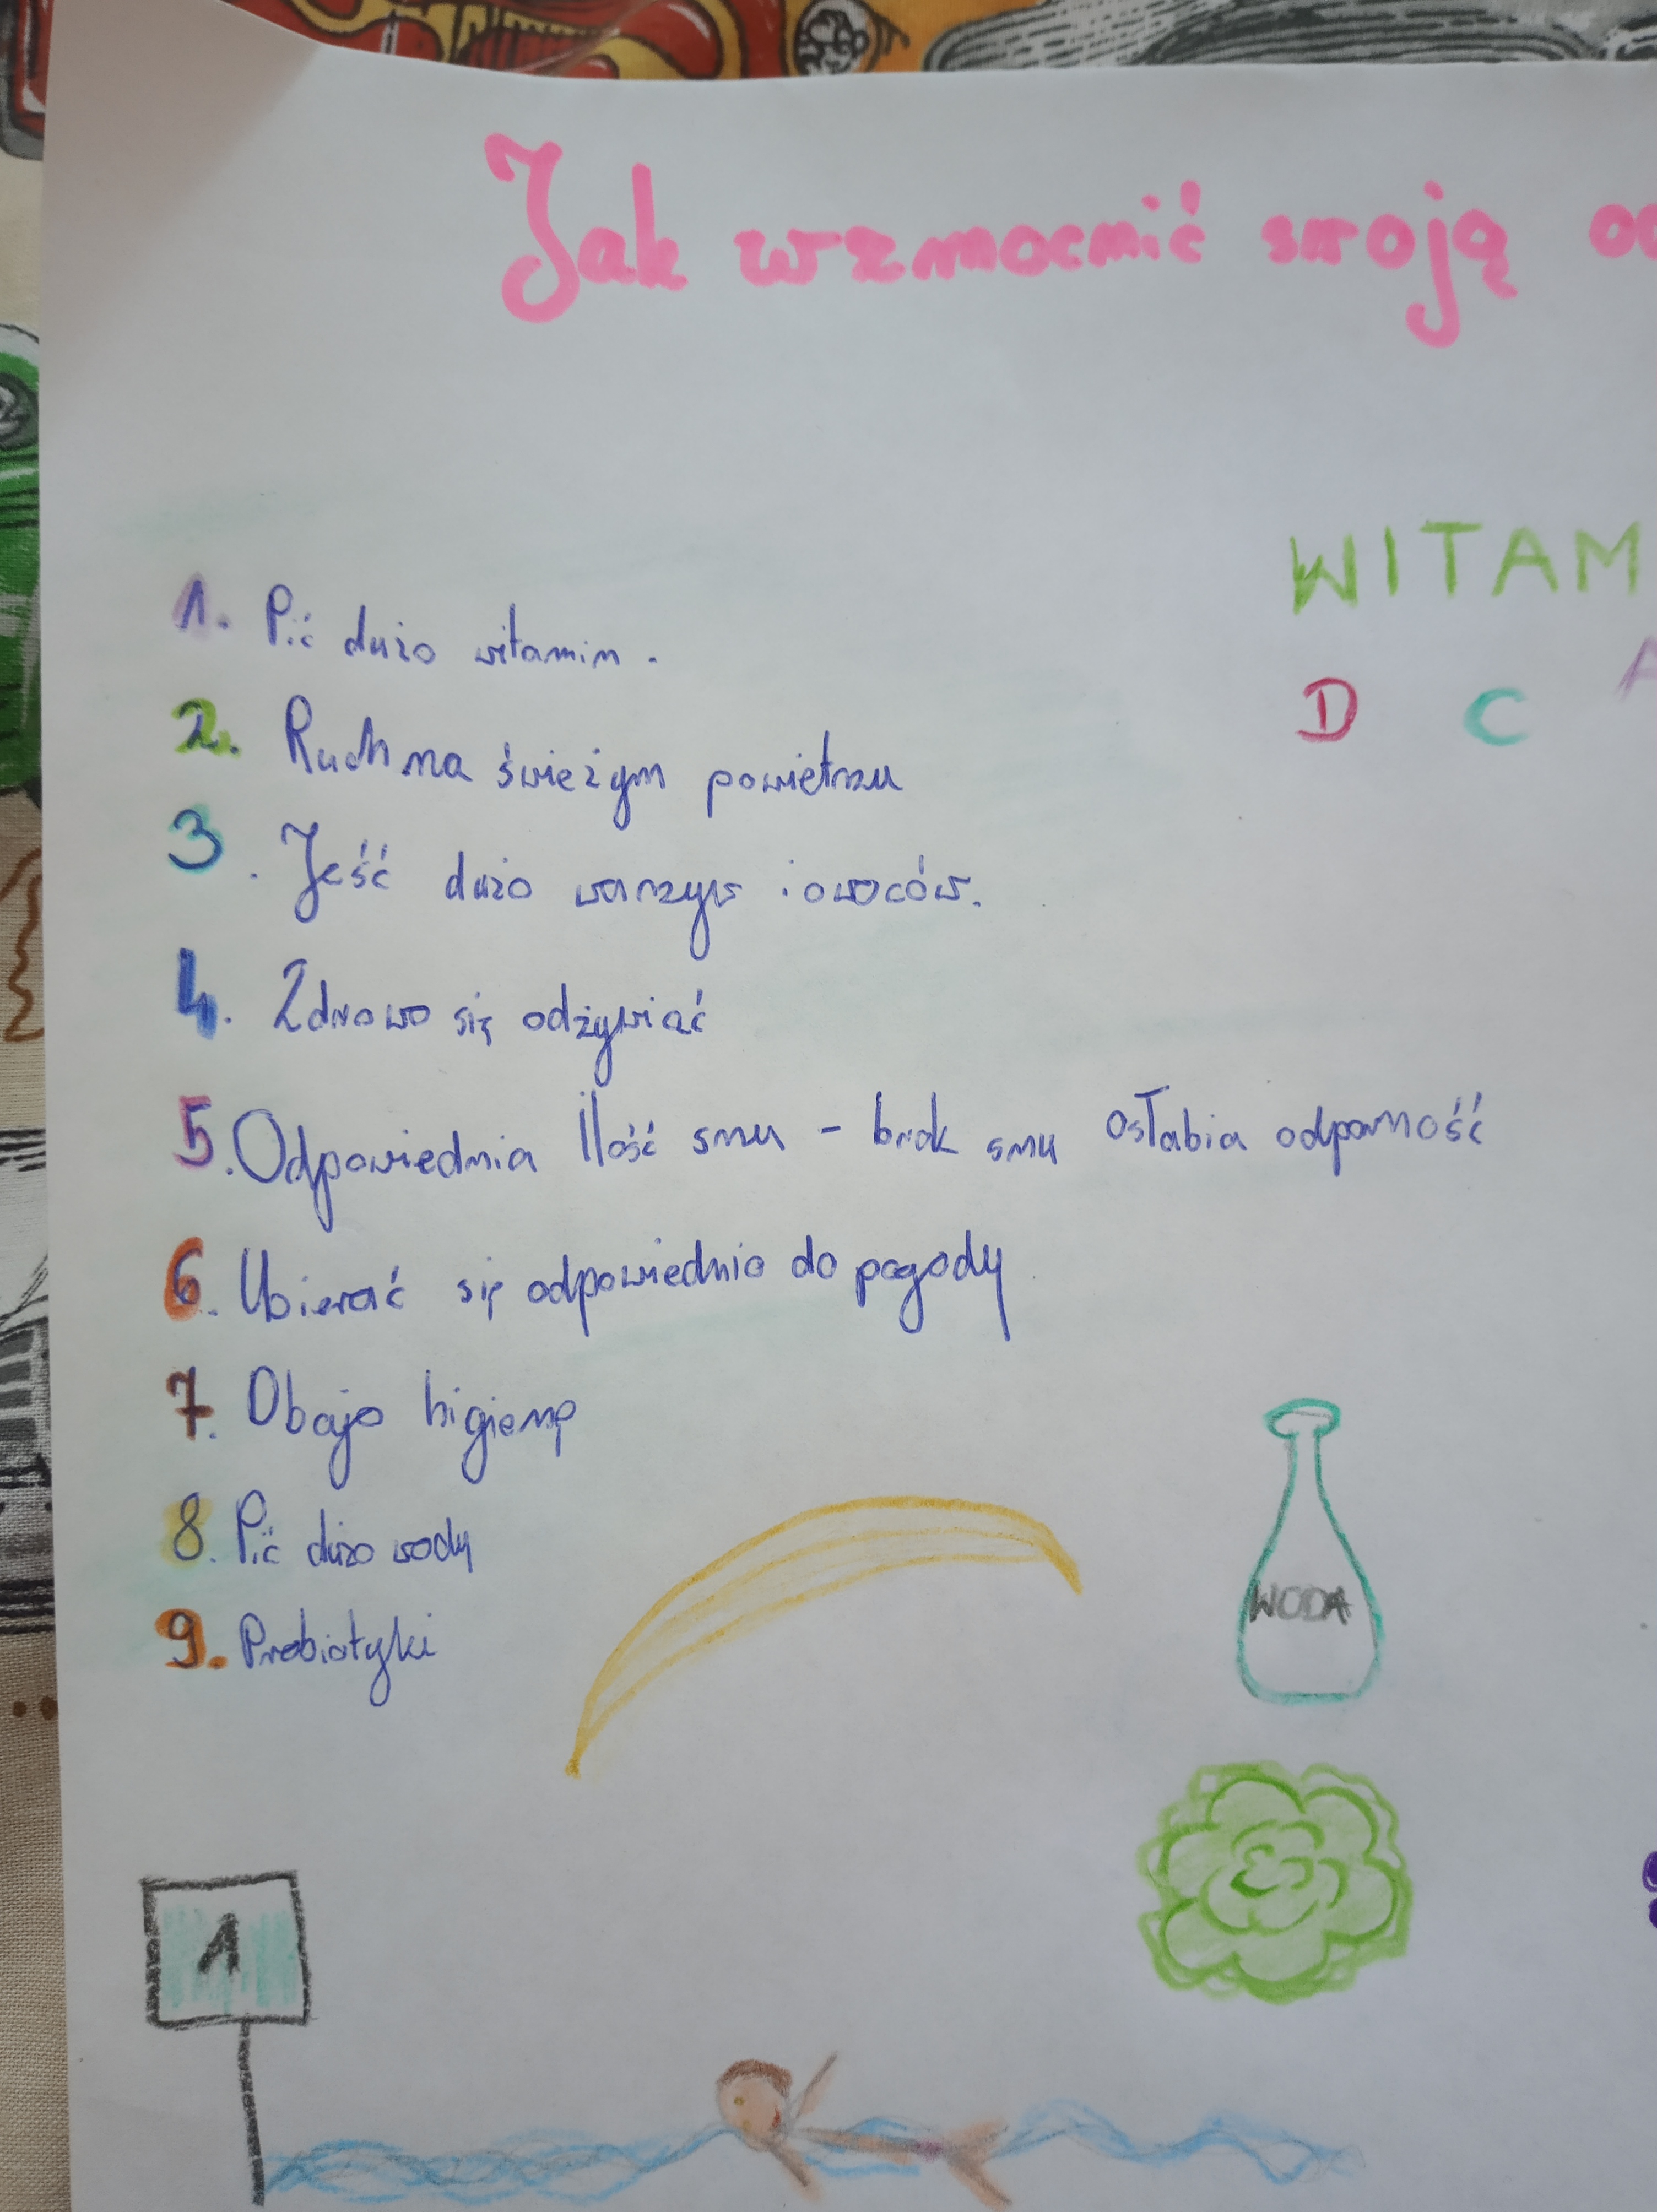 Jak wzmocnić swoją od
WITAM
D C A
1. Pić dużo witamin.
2. Ruch na świeżym powietrzu
3. Jeść dużo warzyw i owoców.
4. Zdrowo się odżywiać
5. Odpowiednia Ilość snu - brak snu osłabia odporność
6. Ubierać się odpowiednio do pogody
7. Obajo higienę
8. Pić dużo wody
9. Probiotyki
WODA
1